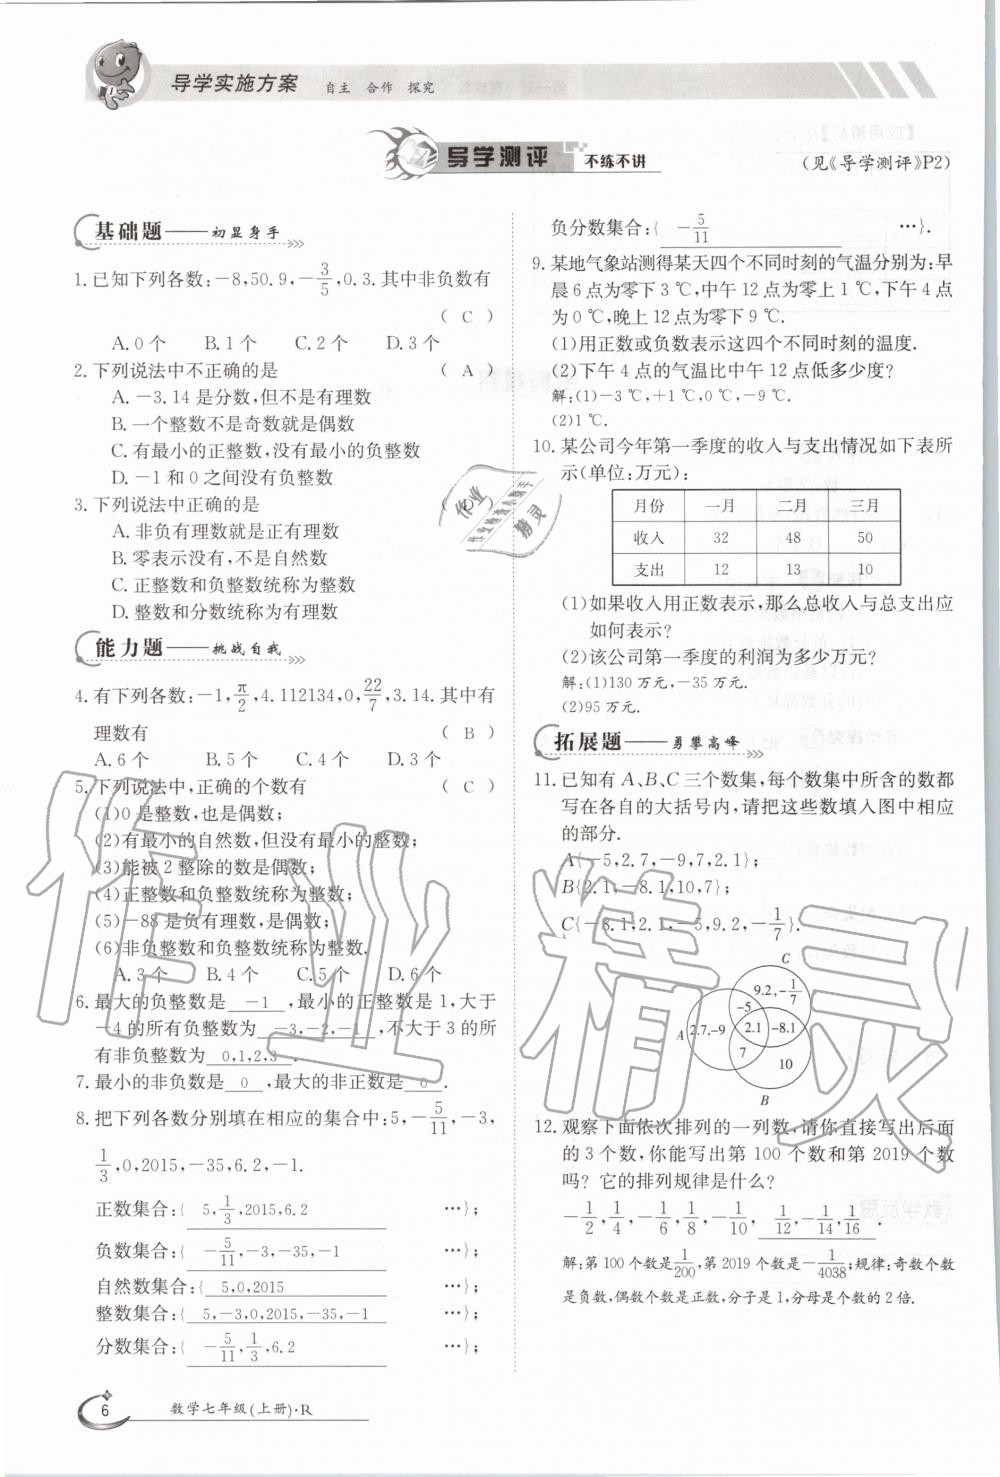 导学实施方案 自主 合作 探究
导学测评 不练不讲
(见《导学测评》P2)
基础题——初显身手
1.已知下列各数:-8,50.9,-3/5,0.3.其中非负数有
( C )
A.0个 B.1个 C.2个 D.3个
2.下列说法中不正确的是 ( A )
A.-3.14是分数,但不是有理数
B.一个整数不是奇数就是偶数
C.有最小的正整数,没有最小的负整数
D.-1和0之间没有负整数
3.下列说法中正确的是 ( D )
A.非负有理数就是正有理数
B.零表示没有,不是自然数
C.正整数和负整数统称为整数
D.整数和分数统称为有理数
能力题——挑战自我
4.有下列各数:-1,π/2,4.112134,0,22/7,3.14.其中有
理数有 ( B )
A.6个 B.5个 C.4个 D.3个
5.下列说法中,正确的个数有 ( C )
(1)0是整数,也是偶数;
(2)有最小的自然数,但没有最小的整数;
(3)能被2整除的数是偶数;
(4)正整数和负整数统称为整数;
(5)-88是负有理数,是偶数;
(6)非负整数和负整数统称为整数.
A.3个 B.4个 C.5个 D.6个
6.最大的负整数是 -1 ,最小的正整数是1,大于
-4的所有负整数为 -3,-2,-1 ,不大于3的所
有非负整数为 0,1,2,3 .
7.最小的非负数是 0 ,最大的非正数是 0 .
8.把下列各数分别填在相应的集合中:5,-5/11,-3,
1/3,0,2015,-35,6.2,-1.
正数集合:{ 5,1/3,2015,6.2 …};
负数集合:{ -5/11,-3,-35,-1 …};
自然数集合:{ 5,0,2015 …};
整数集合:{ 5,-3,0,2015,-35,-1 …};
分数集合:{ -5/11,1/3,6.2 …};
负分数集合:{ -5/11 …}.
9.某地气象站测得某天四个不同时刻的气温分别为:早
晨6点为零下3℃,中午12点为零上1℃,下午4点
为0℃,晚上12点为零下9℃.
(1)用正数或负数表示这四个不同时刻的温度.
(2)下午4点的气温比中午12点低多少度?
解:(1)-3℃,+1℃,0℃,-9℃.
(2)1℃.
10.某公司今年第一季度的收入与支出情况如下表所
示(单位:万元):
月份 一月 二月 三月
收入 32 48 50
支出 12 13 10
(1)如果收入用正数表示,那么总收入与总支出应
如何表示?
(2)该公司第一季度的利润为多少万元?
解:(1)130万元,-35万元.
(2)95万元.
拓展题——勇攀高峰
11.已知有A、B、C三个数集,每个数集中所含的数都
写在各自的大括号内,请把这些数填入图中相应
的部分.
A{-5,2.7,-9,7,2.1};
B{2.1,-8.1,10,7};
C{-8.1,2.1,-5,9.2,-1/7}.
C
9.2,-1/7
-5
A 2.7,-9 2.1 -8.1
7
10
B
12.观察下面依次排列的一列数,请你直接写出后面
的3个数,你能写出第100个数和第2019个数
吗?它的排列规律是什么?
-1/2,1/4,-1/6,1/8,-1/10, 1/12,-1/14,1/16 .
解:第100个数是1/200,第2019个数是-1/4038;规律:奇数个数
是负数,偶数个数是正数,分子是1,分母是个数的2倍.
6 数学七年级(上册)·R
作业精灵